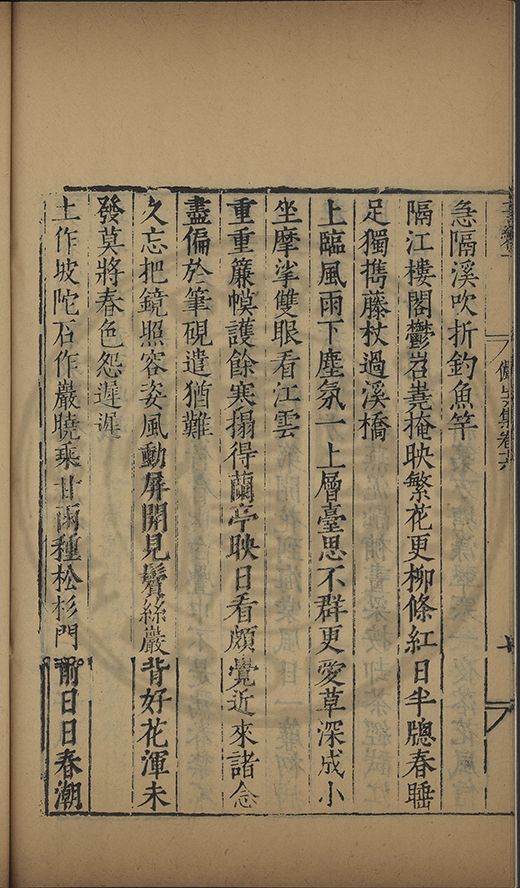 急隔溪吹折釣魚竿
隔江樓閣鬱岧嶤掩映繁花更柳條紅日半牕春睡
足獨攜藤杖過溪橋
上臨風雨下塵氛一上層臺思不群更愛草深成小
坐摩挲雙眼看江雲
重重簾幙護餘寒搨得蘭亭映日看頗覺近來諸念
盡偏於筆硯遣猶難
久忘把鏡照容姿風動屏開見鬢絲巖背好花渾未
發莫將春色怨遲遲
土作坡陀石作巖曉乘甘雨種松杉門前日日春潮
集卷六